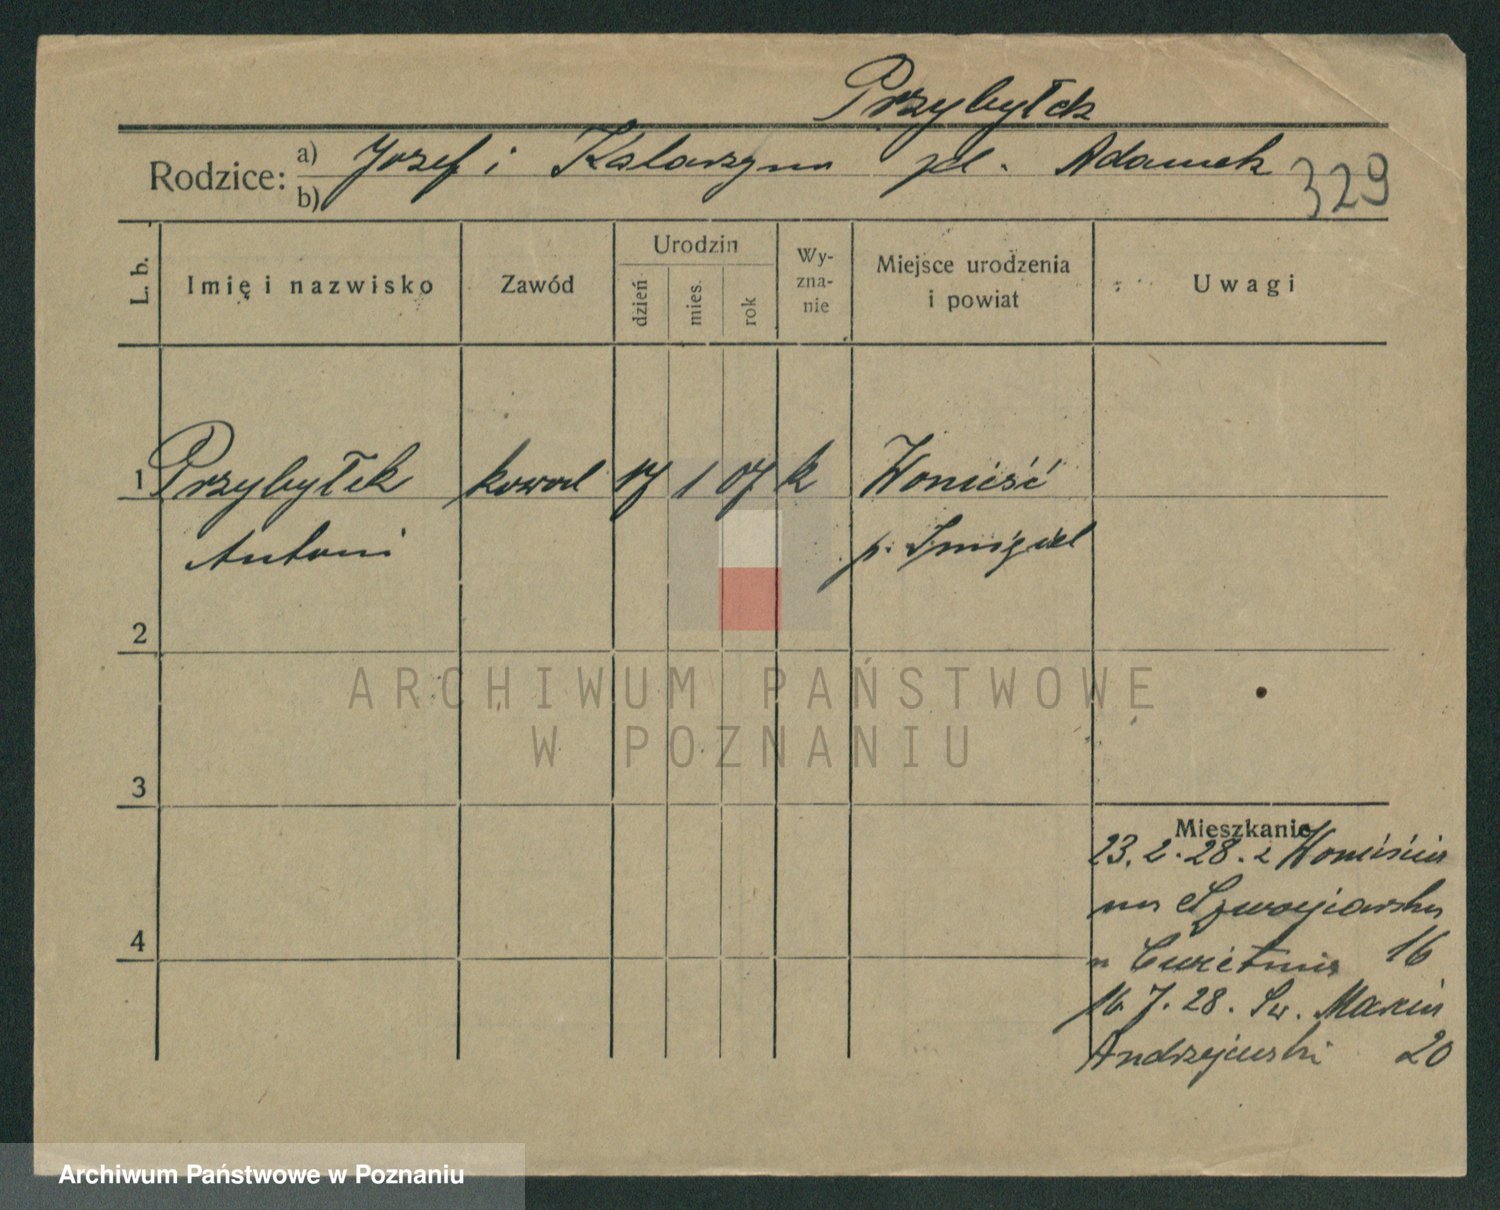 Przybyłek
Rodzice: a) Jozef i Katarzyna pd. Adamek 329
b)
L. b. Imię i nazwisko Zawód Urodzin dzień mies. rok Wy-zna-nie Miejsce urodzenia i powiat Uwagi
1 Przybyłek kowal 17 1 07 k Wonieść
Antoni p. Śmigiel
2
3
Mieszkanie
23. 2. 28. z Wonieścia
na Szwajcarska
4
u 16
16. 7. 28. Św. Marcin
Andrzejewski 20
ARCHIWUM PAŃSTWOWE
W POZNANIU
Archiwum Państwowe w Poznaniu